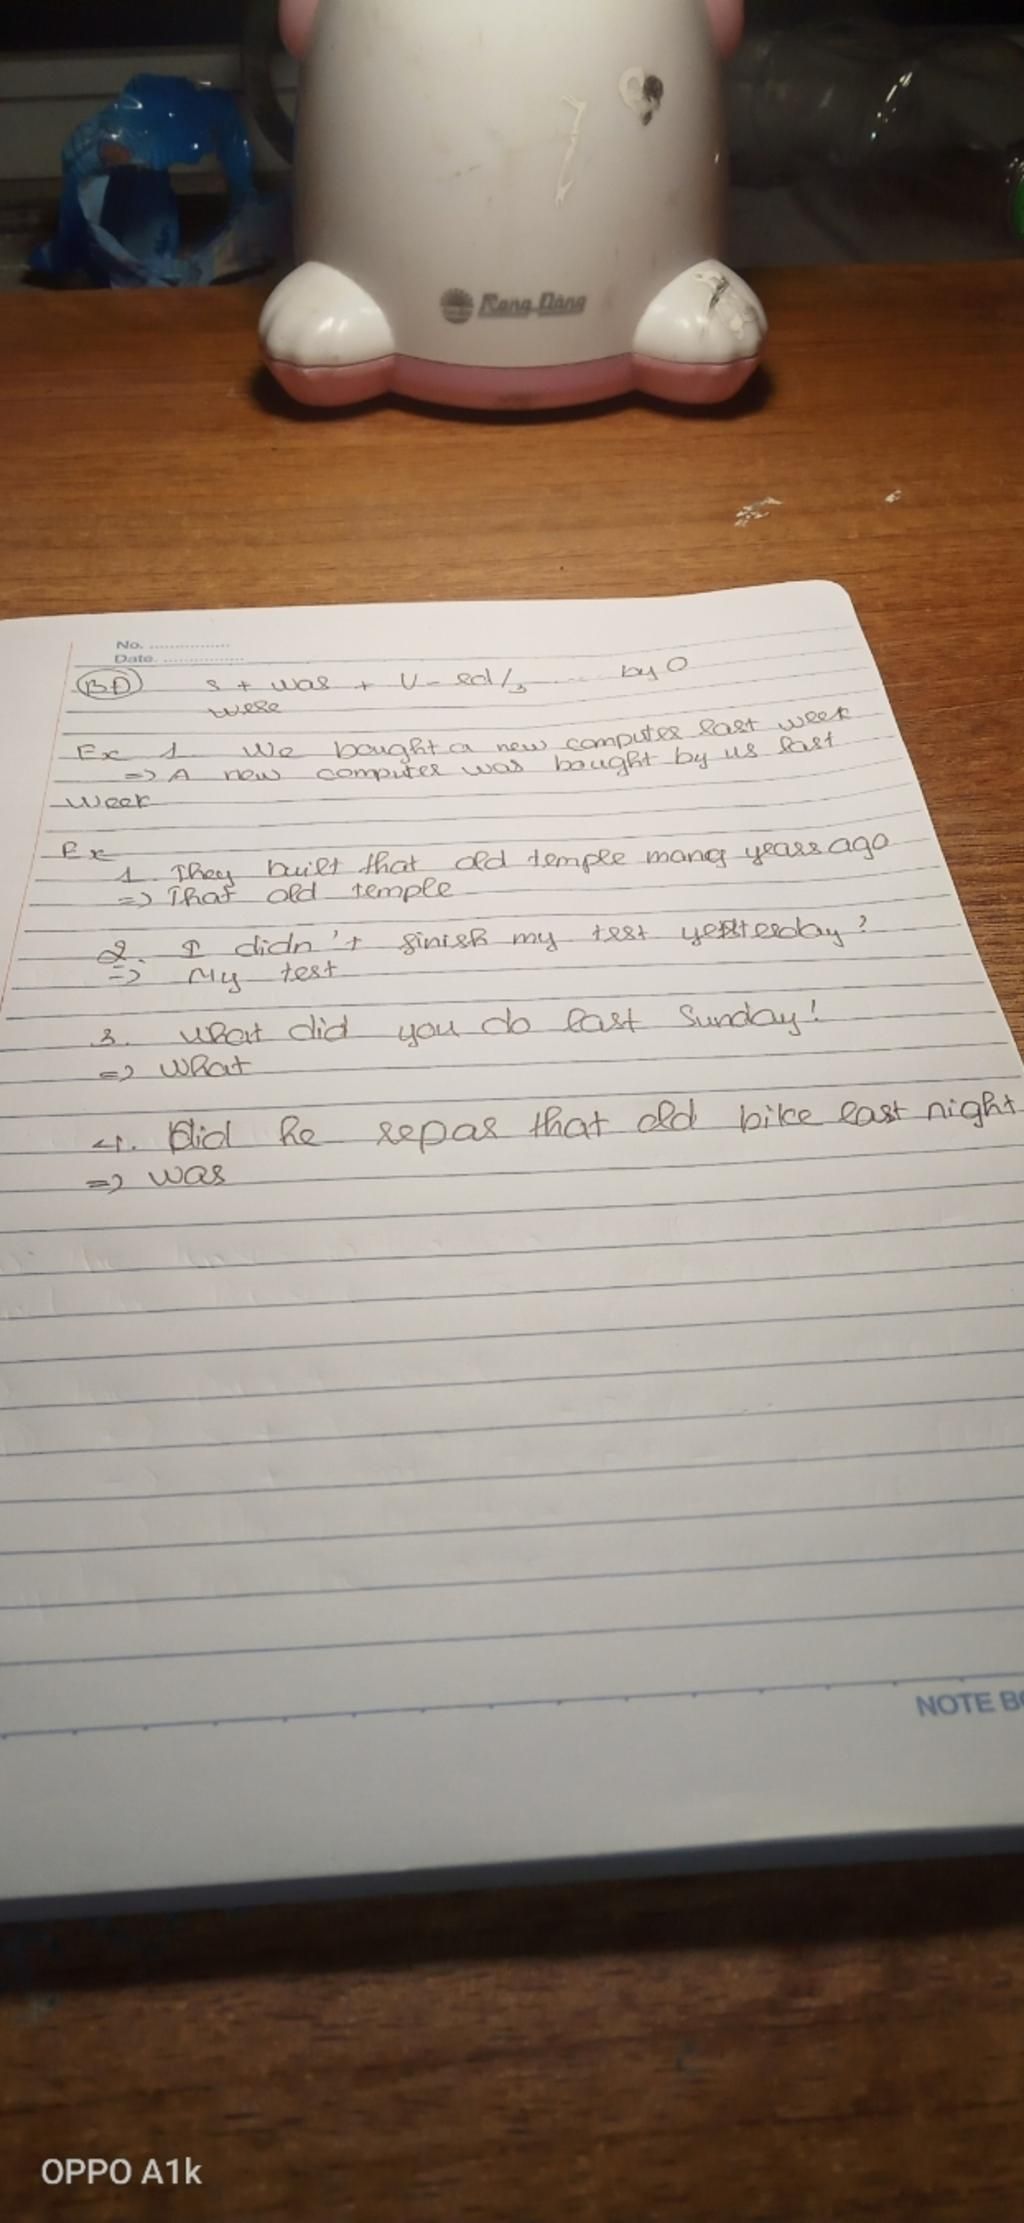 Rạng Đông
No. ................
Date. ................
BĐ S + was + V-ed/3 ... by O
were
Ex 1 We bought a new computer last week
=> A new computer was bought by us last
week
Ex
1. They built that old temple many years ago
=> That old temple
2. I didn't finish my test yesterday?
=> My test
3. What did you do last Sunday!
=> What
4. Did he repar that old bike last night
=> was
NOTE BO
OPPO A1k